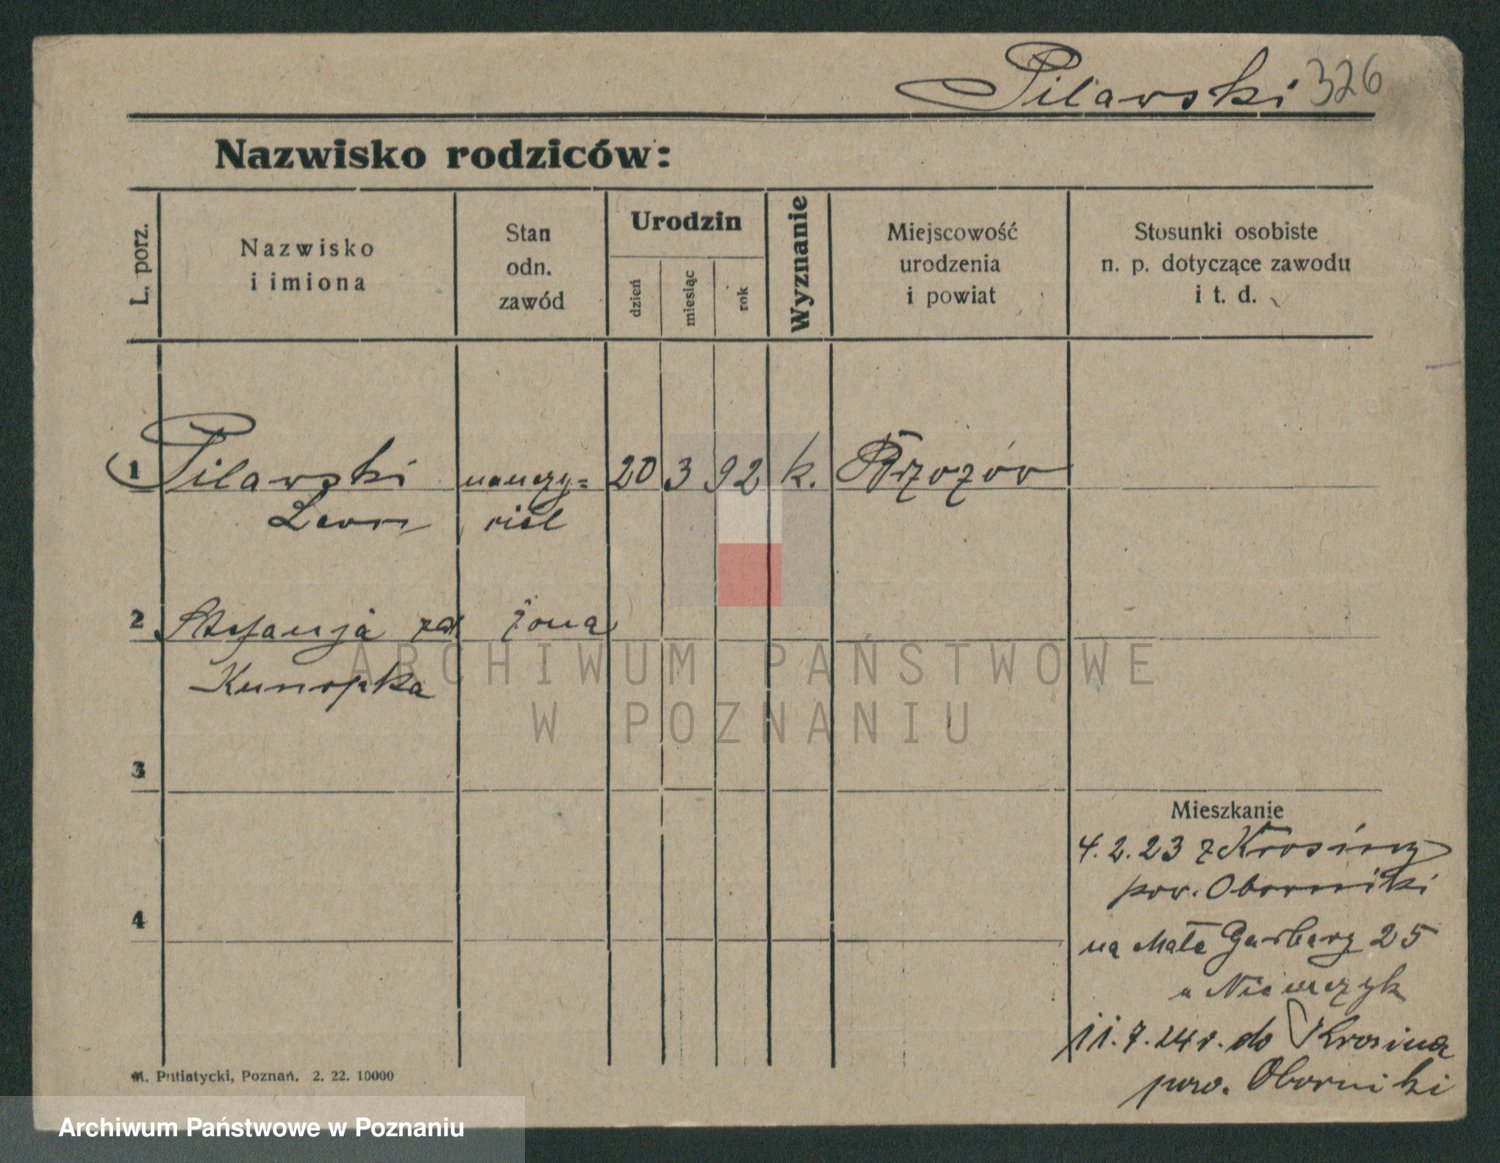 Pilawski 326
Nazwisko rodziców:
L. porz.
Nazwisko
i imiona
Stan
odn.
zawód
Urodzin
dzień
miesiąc
rok
Wyznanie
Miejscowość
urodzenia
i powiat
Stosunki osobiste
n. p. dotyczące zawodu
i t. d.
1 Pilawski nauczy= 20 3 92 k. Brzozów
Leon ciel
2 Stefanja zd żona
Kunopka
ARCHIWUM PAŃSTWOWE
W POZNANIU
3
Mieszkanie
4. 2. 23 z Krosiny
pow. Oborniki
4
na Małe Garbary 25
u Niemczyk
11. 7. 24 r. do Krosina
pow. Oborniki
M. Putiatycki, Poznań. 2. 22. 10000
Archiwum Państwowe w Poznaniu